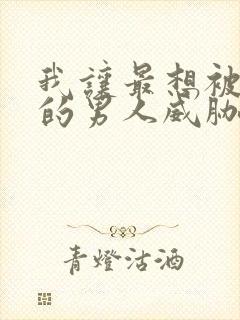 我讓最想被
的男人威脅
青燈沽酒